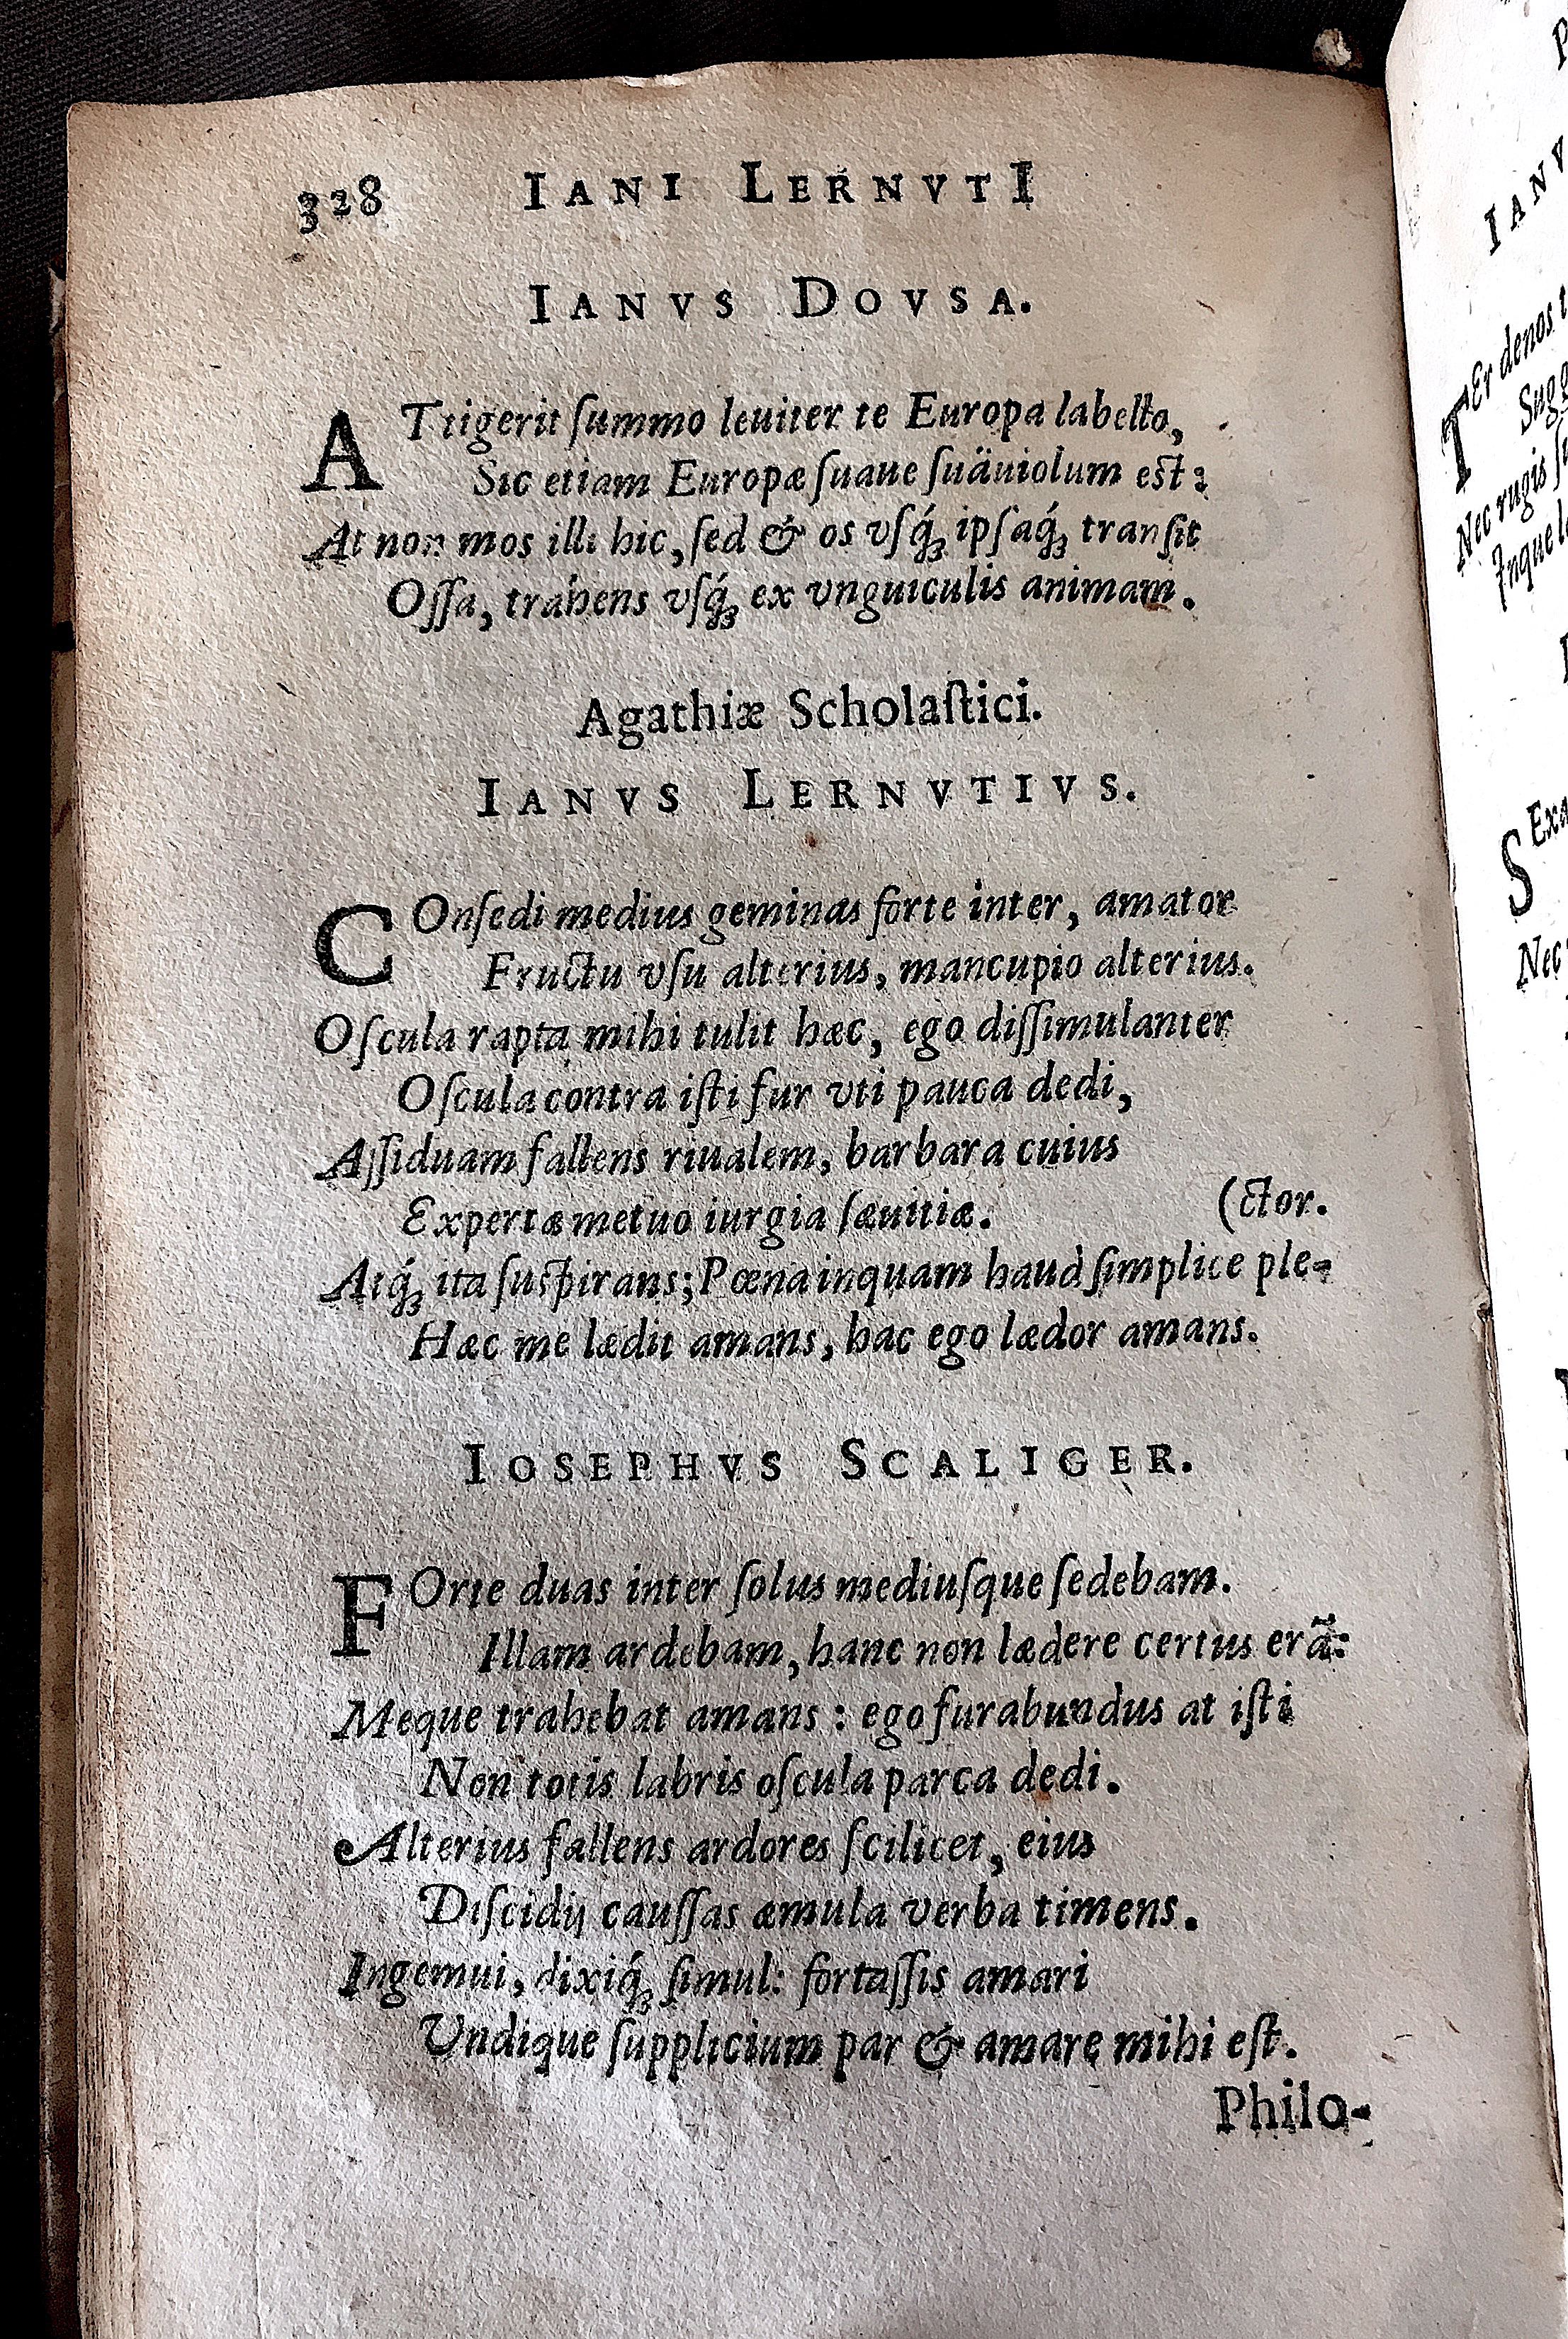 328 IANI LERNVTI
IANVS DOVSA.
ATtigerit ſummo leuiter te Europa labello,
Sic etiam Europæ ſuaue ſuäuiolum est:
At non mos illi hic, ſed & os vſq́ꝫ ipſaq́ꝫ tranſit
Oſſa, trahens vſq́ꝫ ex vnguiculis animam.
Agathiæ Scholaſtici.
IANVS LERNVTIVS.
COnſedi medius geminas forte inter, amator
Fructu vſu alterius, mancupio alterius.
Oſcula rapta mihi tulit hæc, ego diſſimulanter
Oſcula contra iſti fur vti pauca dedi,
Aſſiduam fallens riualem, barbara cuius
Expertæ metuo iurgia ſæuitiæ. (ctor.
Atq́ꝫ ita ſuſpirans; Pœna inquam haud ſimplice ple-
Hæc me lædit amans, hac ego lædor amans.
IOSEPHVS SCALIGER.
FOrte duas inter ſolus mediuſque ſedebam.
Illam ardebam, hanc non lædere certus erã:
Meque trahebat amans : ego furabundus at iſti
Non totis labris oſcula parca dedi.
Alterius fallens ardores ſcilicet, eius
Diſcidij cauſſas æmula verba timens.
Ingemui, dixiq́ꝫ ſimul: fortaſſis amari
Undique ſupplicium par & amare mihi eſt.
Philo-
IANV
TEr denos
Nec rugis
Inque
SExa
Nec